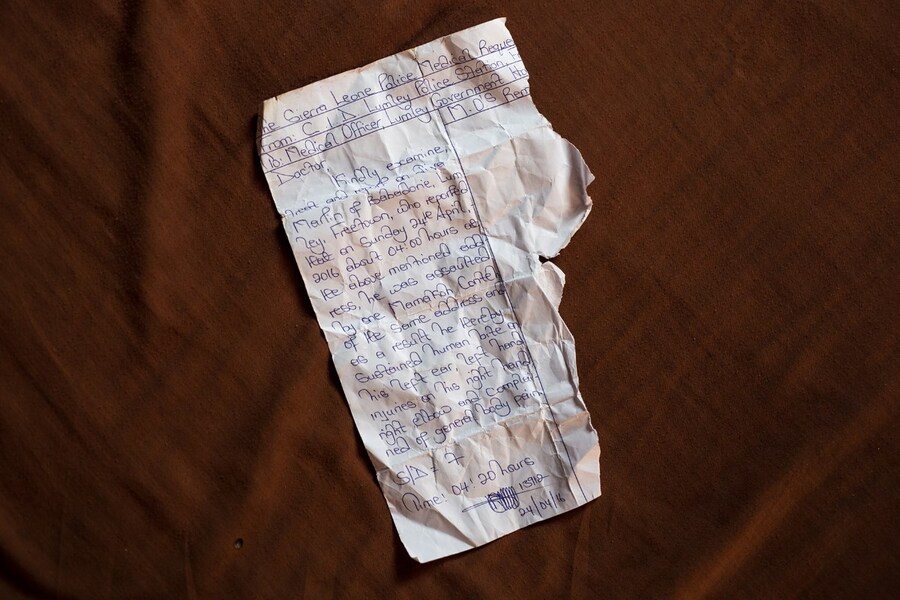 he Sierra Leone Police Medical Reque
From: C A Lumley Police Station,
To: Medical Officer Lumley Government Ho
Doctor, M.O'S Rem
Kindly examine,
treat and report on
Martin of Babadorie, Lum
ley, Freetown, who reported
that on Sunday 24th April,
2016 about 04:00 hours at
the above mentioned add
ress, he was assaulted
by one Mamakoh Conteh
of the same address and
as a result he thereby
sustained human bite on
his left ear, left hand
injuries on his right hand
right elbow and complai
ned of general body pain.
S/D - 7
Time: 04:20 hours
24/04/16